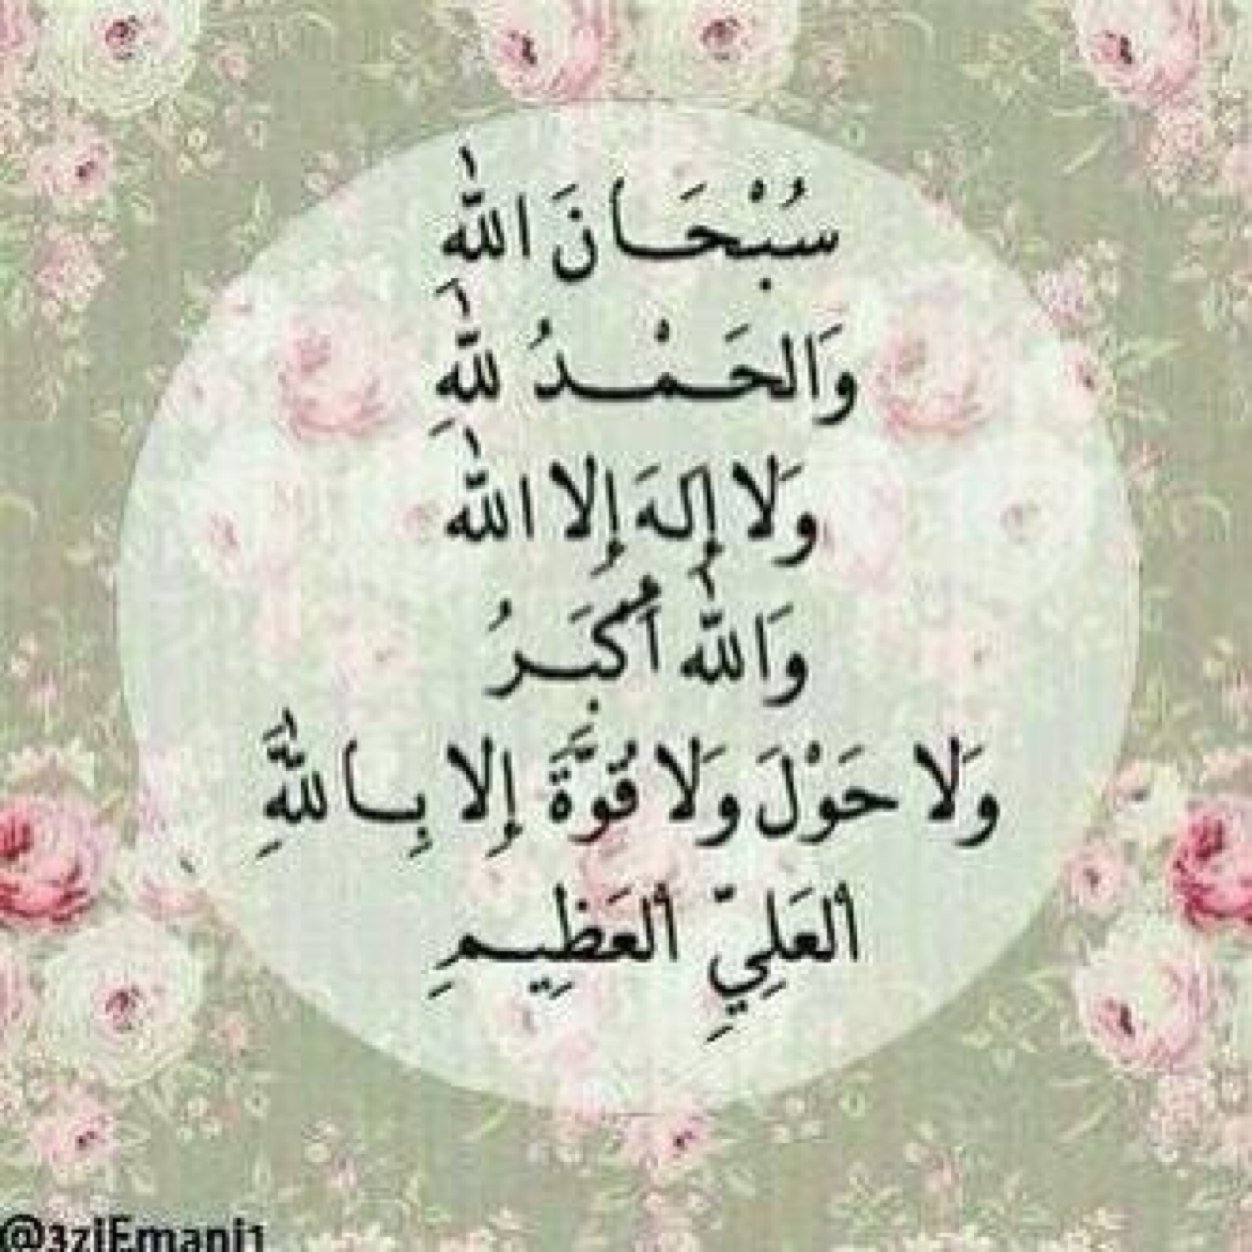 سُبْحَـانَ اللهِ
وَالحَمْـدُ للهِ
وَلا إِلهَ إِلا الله
وَالله أَكْبَـرُ
وَلا حَوْلَ وَلا قُوَّةَ إِلا بِـاللَّهِ
ألعَلِيِّ ألعَظِيـمِ
@3zjEmani1